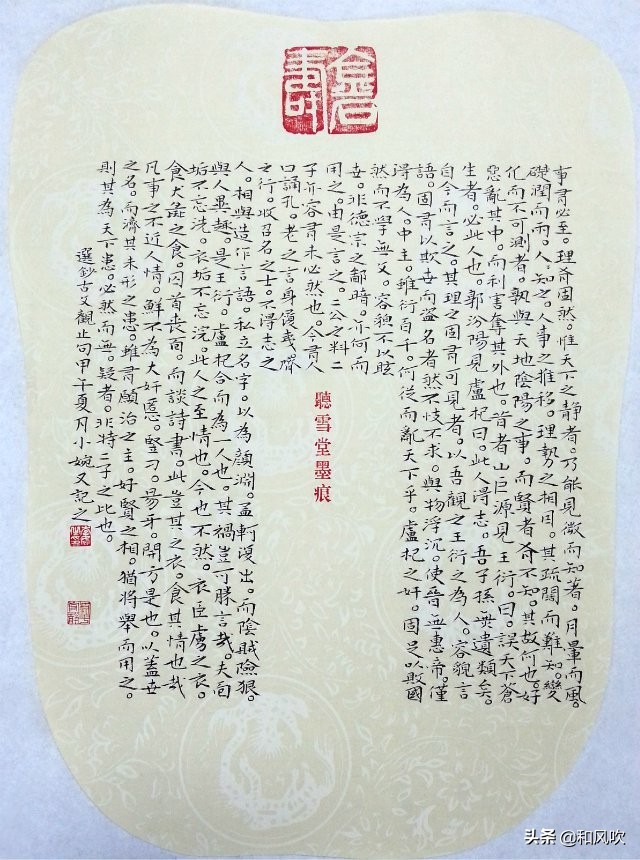 事有必至。理有固然。惟天下之静者。乃能見微而知著。月暈而風。
礎潤而雨。人々知之。人事之推移。理勢之相因。其疏闊而難知。變
化而不可測者。孰與天地陰陽之事。而賢者有不知。其故何也。好
惡亂其中。而利害奪其外也。昔者山巨源見王衍。曰。誤天下蒼
生者。必此人也。郭汾陽見盧杞曰。此人得志。吾子孫無遺類矣。
自今而言之。其理之固有可見者。以吾觀之王衍之為人。容貌言
語。固有以欺世而盜名者然不忮不求。與物浮沉。使晉無惠帝。僅
得為人。中主。雖衍百千。何從而亂天下乎。盧杞之奸。固足以敗國
然而不學無文。容貌不以眩
世。非德宗之鄙暗。亦何而
用之。由是言之。二公之料二
子亦容有未必然也。今有人
口誦孔。老之言身履夷齊
之行。收召名之士。不得志之
人。相與造作言語。私立名字。以為顏淵。孟軻復出。而陰賊險狠。
與人異趣。是王衍。盧杞合而為一人也。其禍豈可勝言哉。夫面
垢不忘洗。衣垢不忘浣。此人之至情也。今也不然。衣臣虜之衣。
食犬彘之食。囚首喪面。而談詩書。此豈其之衣。食其情也哉
凡事之不近人情。鮮不為大奸慝。豎刁。易牙。開方是也。以蓋世
之名。而濟其未形之患。雖有願治之主。好賢之相。猶將舉而用之。
則其為天下患。必然而無。疑者。非特二子之比也。
選鈔古文觀止句甲午夏月小婉又記之
聽雪堂墨痕
头条 @和风吹